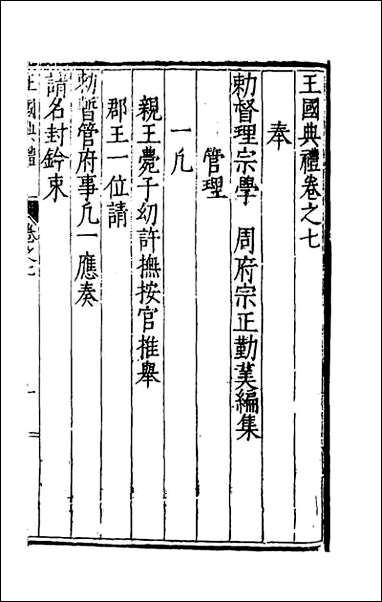 王國典禮卷之七
奉
勅督理宗學　周府宗正勤𦺋編集
管理
一凡
親王薨子幼許撫按官推舉
郡王一位請
勅暫管府事凡一應奏
請名封鈐束
王國典禮